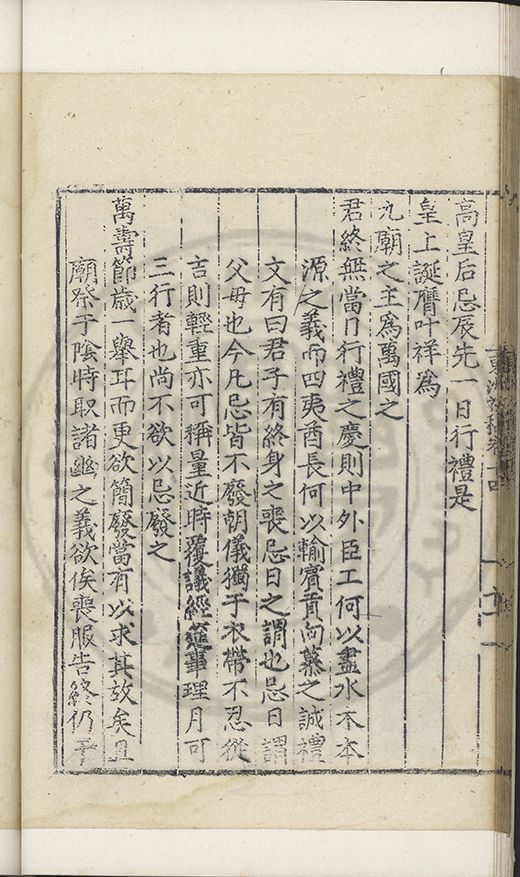 高皇后忌辰先一日行禮是
皇上誕膺叶祥為
九廟之主為萬國之
君終無當日行禮之慶則中外臣工何以盡水木本
源之義而四夷酋長何以輸賓貢向慕之誠禮
文有曰君子有終身之喪忌日之謂也忌日謂
父母也今凡忌皆不廢朝儀獨于衣帶不忍從
吉則輕重亦可稱量近時覆議經筵事理月可
三行者也尚不欲以忌廢之
萬壽節歲一舉耳而更欲簡廢當有以求其故矣且
廟祭于陰時取諸幽之義欲俟喪服告終仍于